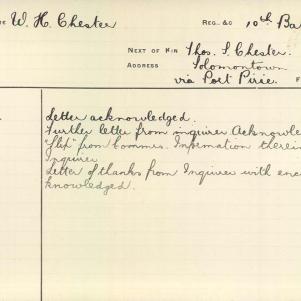 W. H. Chester REG. &C 10th Ba
NEXT OF KIN Thos. S. Chester.
ADDRESS Solomontown
via Port Pirie. F
Letter acknowledged.
Further letter from inquirer Acknowle
"Slip" from Commrs. Information therein
Inquirer
Letter of thanks from Inquirer with enc
knowledged.